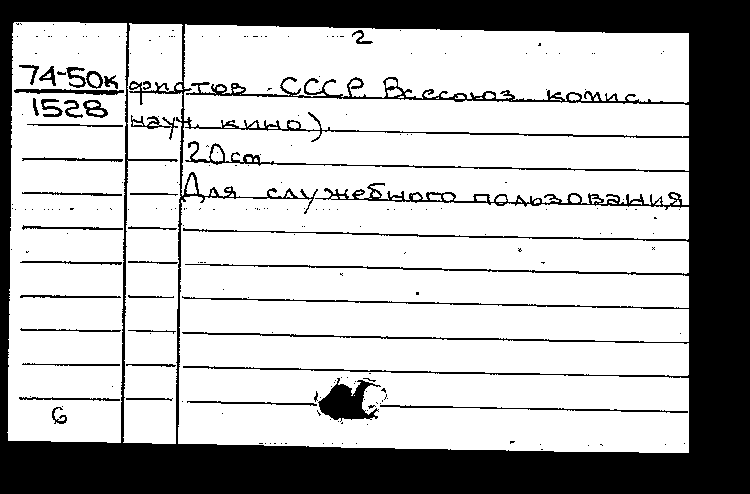 2
74-50к фистов СССР. Всесоюз. комис.
1528 науч. кино).
20 cm.
Для служебного пользования
6